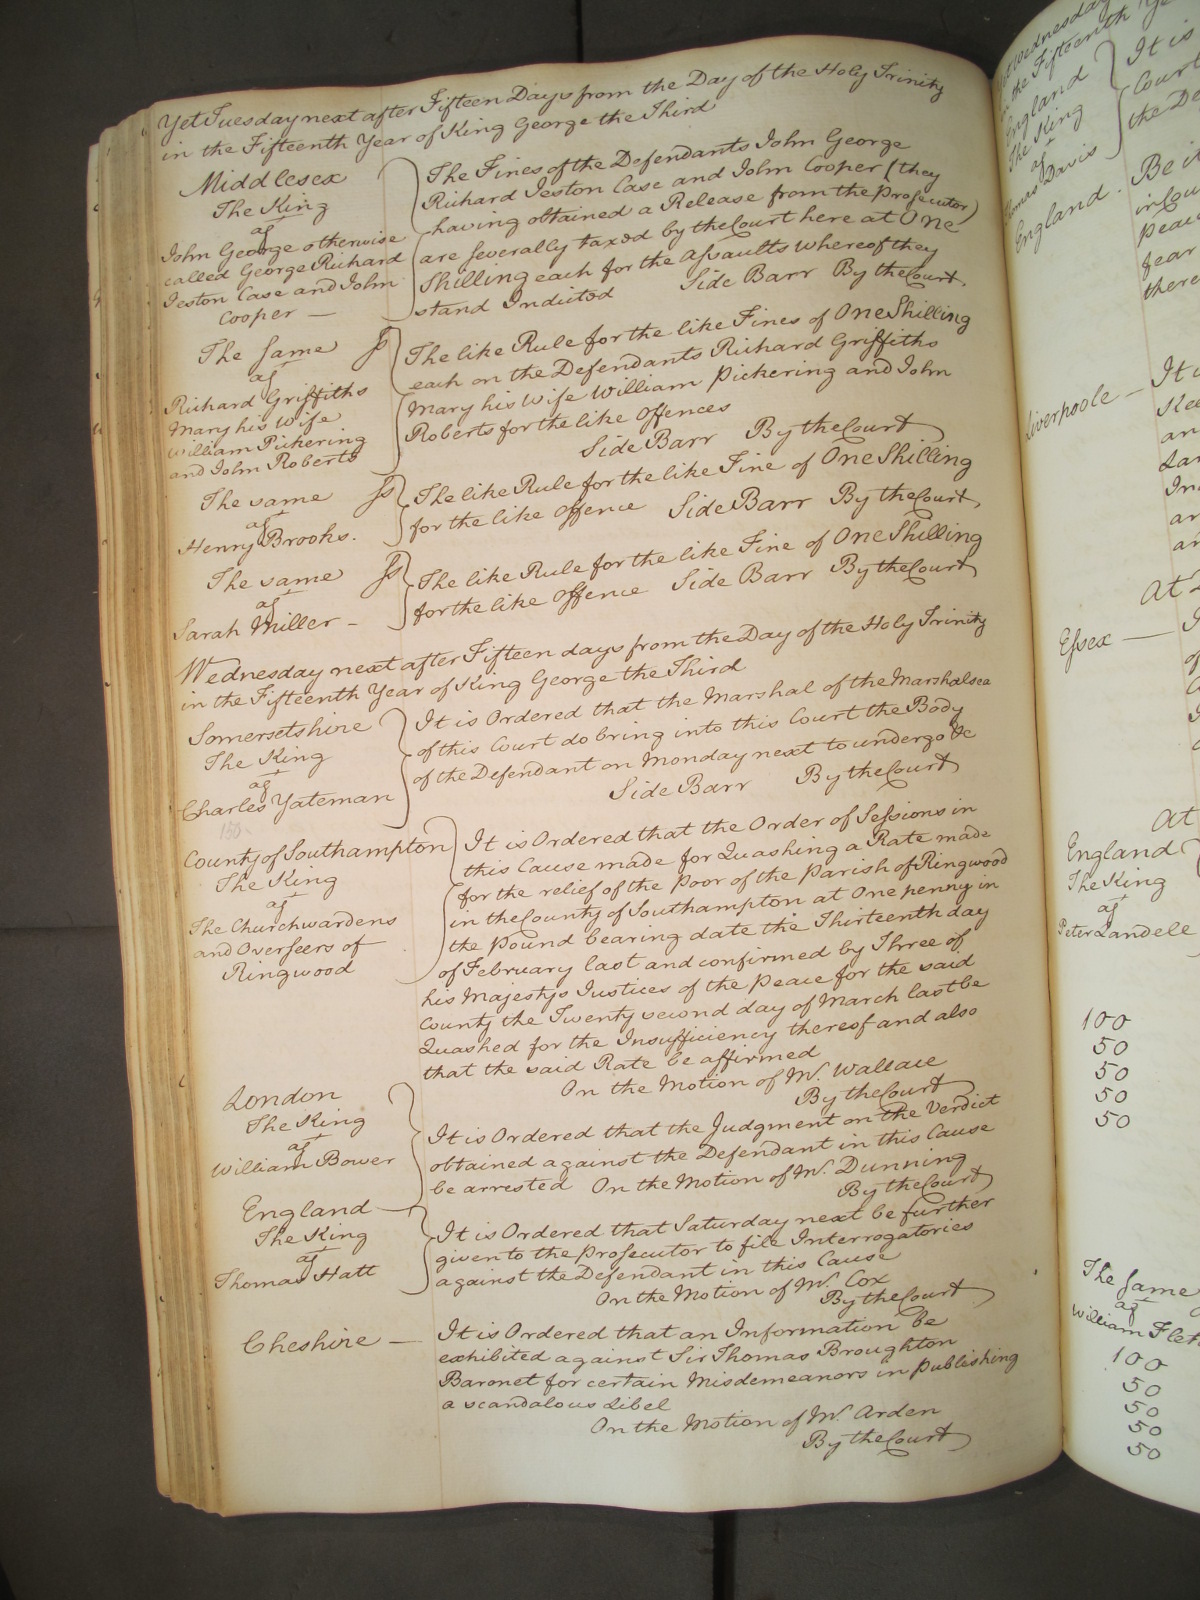 Yet Tuesday next after Fifteen Days from the Day of the Holy Trinity
in the Fifteenth Year of King George the Third
Middlesex
The King
agt
John George otherwise
called George Richard
Jeston Case and John
Cooper —
The Fines of the Defendants John George
Richard Jeston Case and John Cooper (they
having obtained a Release from the Prosecutor)
are severally taxed by the Court here at One
Shilling each for the Assaults whereof they
stand Indicted Side Barr By the Court
The same ss
agt
Richard Griffiths
Mary his Wife
William Pickering
and John Roberts
The like Rule for the like Fines of One Shilling
each on the Defendants Richard Griffiths
Mary his Wife William Pickering and John
Roberts for the like Offences
Side Barr By the Court
The same ss
agt
Henry Brooks.
The like Rule for the like Fine of One Shilling
for the like Offence Side Barr By the Court
The same ss
agt
Sarah Miller —
The like Rule for the like Fine of One Shilling
for the like Offence Side Barr By the Court
Wednesday next after Fifteen days from the Day of the Holy Trinity
in the Fifteenth Year of King George the Third
Somersetshire
The King
agt
Charles Yateman
It is Ordered that the Marshal of the Marshalsea
of this Court do bring into this Court the Body
of the Defendant on Monday next to undergo &c
Side Barr By the Court
County of Southampton
The King
agt
The Churchwardens
and Overseers of
Ringwood
It is Ordered that the Order of Sessions in
this Cause made for Quashing a Rate made
for the relief of the Poor of the Parish of Ringwood
in the County of Southampton at One penny in
the Pound bearing date the Thirteenth day
of February last and confirmed by Three of
his Majestys Justices of the Peace for the said
County the Twenty second day of March last be
Quashed for the Insufficiency thereof and also
that the said Rate be affirmed
On the Motion of Mr. Wallace
By the Court
London
The King
agt
William Bower
It is Ordered that the Judgment on the Verdict
obtained against the Defendant in this Cause
be arrested On the Motion of Mr. Dunning
By the Court
England
The King
agt
Thomas Hatt
It is Ordered that Saturday next be further
given to the Prosecutor to file Interrogatories
against the Defendant in this Cause
On the Motion of Mr. Cox
By the Court
Cheshire —
It is Ordered that an Information be
exhibited against Sir Thomas Broughton
Baronet for certain Misdemeanors in Publishing
a scandalous Libel
On the Motion of Mr. Arden
By the Court
Wednesday
the Fifteenth
England
The King
agt
Thomas Davis
It is
Court
the De
England.
Be it
in Cou
Peace
fear
there
Liverpoole —
At
Essex —
At
England
The King
agt
Peter Landell
100
50
50
50
50
The same
agt
William Flet
100
50
50
50
50